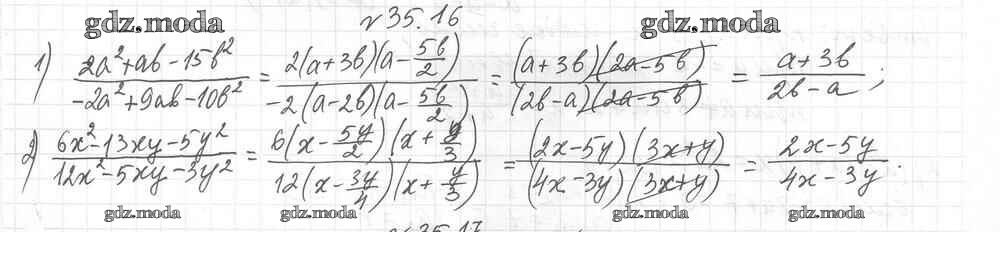 №35.16
gdz.moda gdz.moda gdz.moda
1) (2a²+ab-15b²)/(-2a²+9ab-10b²) = (2(a+3b)(a-5b/2))/(-2(a-2b)(a-5b/2)) = ((a+3b)(2a-5b))/((2b-a)(2a-5b)) = (a+3b)/(2b-a);
2) (6x²-13xy-5y²)/(12x²-5xy-3y²) = (6(x-5y/2)(x+y/3))/(12(x-3y/4)(x+y/3)) = ((2x-5y)(3x+y))/((4x-3y)(3x+y)) = (2x-5y)/(4x-3y).
gdz.moda gdz.moda gdz.moda gdz.moda
№35.17